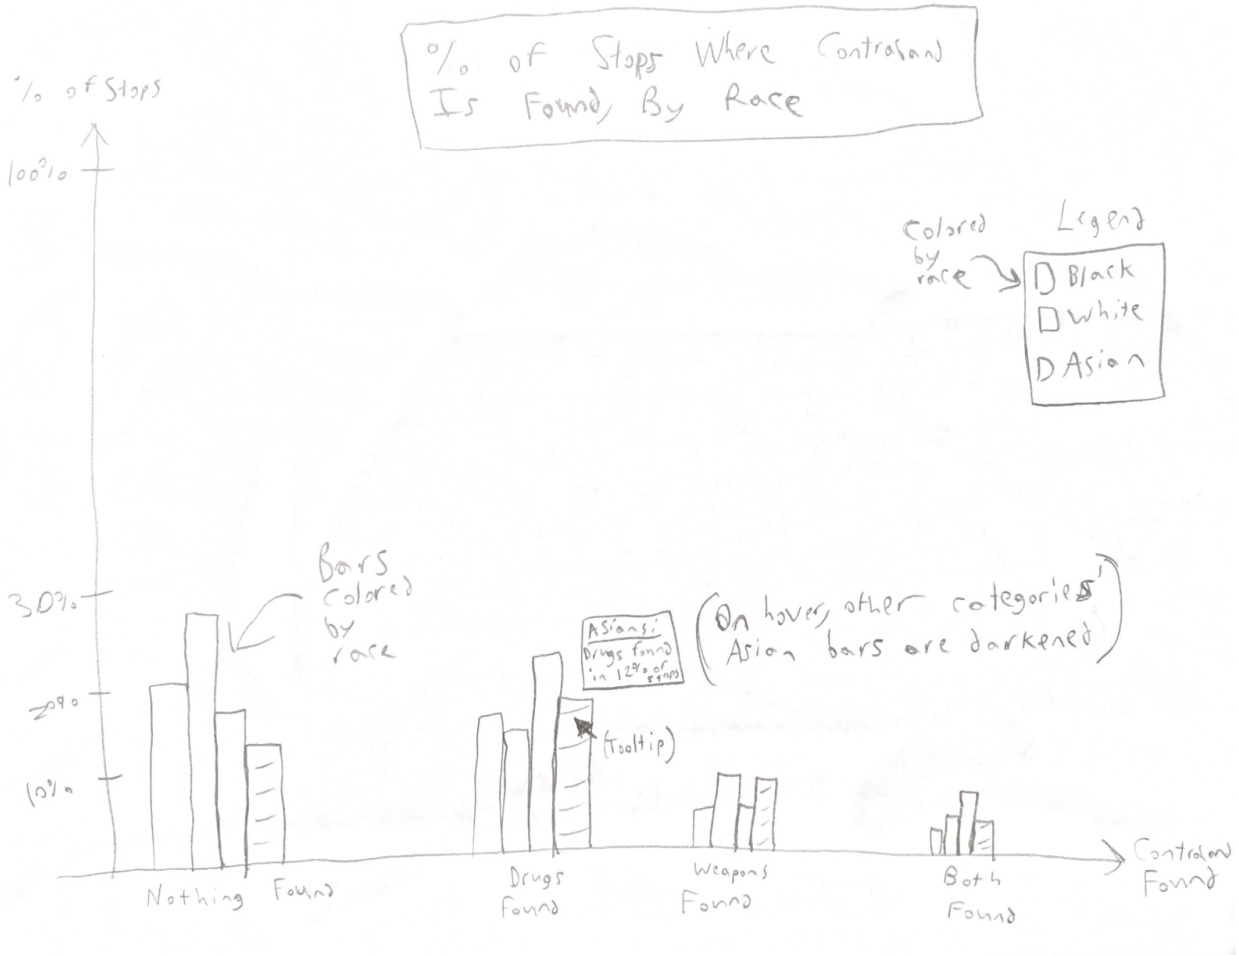 % of Stops Where Contraband
Is Found, By Race
% of Stops
100%
Colored
by
race
Legend
Black
White
Asian
30%
20%
10%
Bars
colored
by
race
Asians:
Drugs found
in 12% of
stops
(Tooltip)
(On hover, other categories'
Asian bars are darkened)
Nothing Found
Drugs
Found
Weapons
Found
Both
Found
Contraband
Found